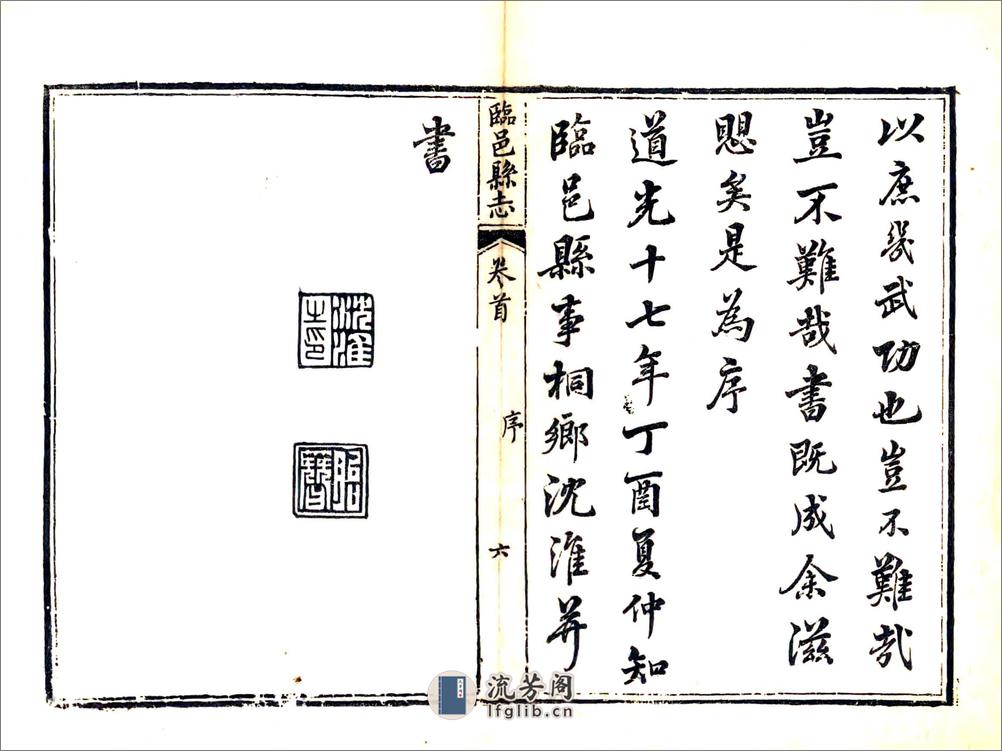 以庶幾武功也豈不難哉
豈不難哉書既成余滋
愳矣是為序
道光十七年丁酉夏仲知
臨邑縣事桐鄉沈淮并
臨邑縣志
卷首
序
六
書
沈淮
之印
流芳阁
lfglib.cn